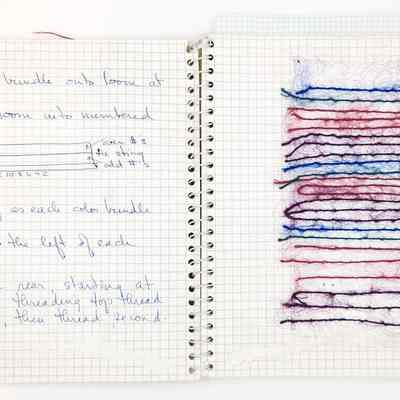 bundle onto loom at
loom into numbered
even #s
tie string
odd #s
2 10 8 6 4 2
as each color bundle
the left of each
rear, starting at
threading top thread
, then thread second